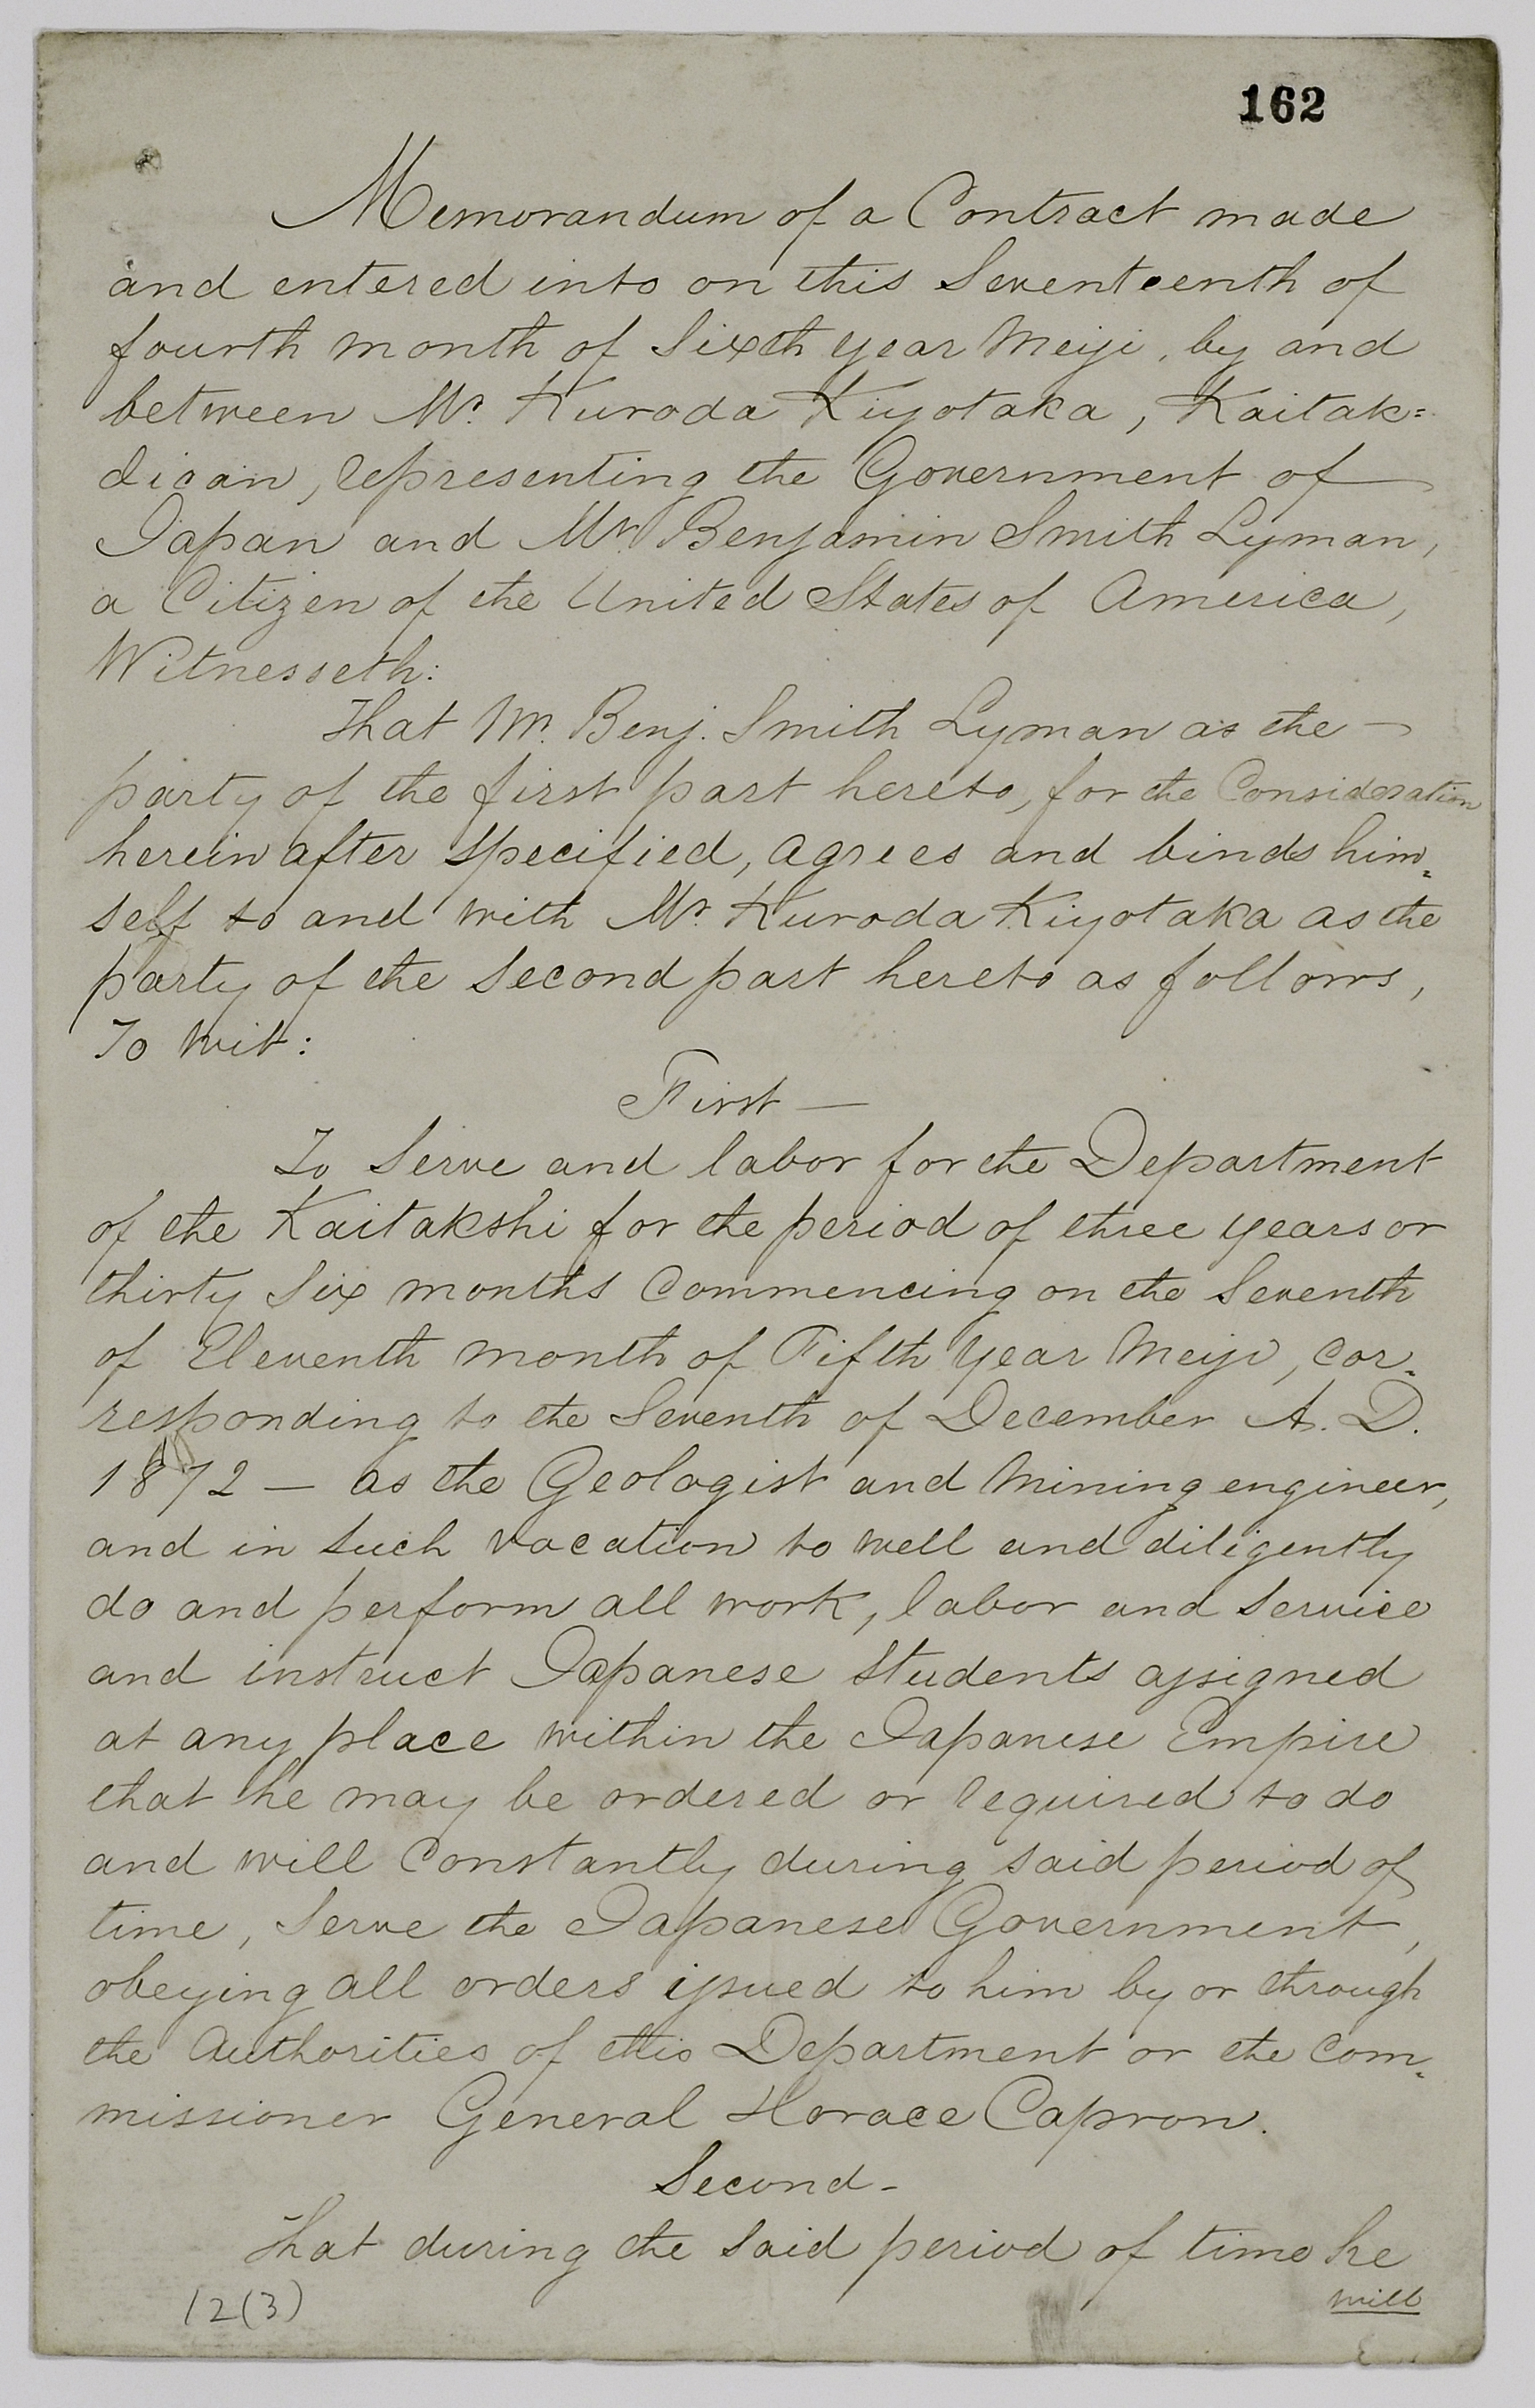 162
Memorandum of a Contract made
and entered into on this Seventeenth of
fourth month of Sixth year Meiji, by and
between Mr. Kuroda Kiyotaka, Kaitak=
dican, representing the Government of
Japan and Mr. Benjamin Smith Lyman,
a Citizen of the United States of America,
Witnesseth:
That Mr. Benj. Smith Lyman as the —
party of the first part hereto, for the Consideration
herein after specified, agrees and binds him=
self to and with Mr. Kuroda Kiyotaka as the
party of the Second part hereto as follows,
To wit:
First —
To Serve and labor for the Department
of the Kaitakshi for the period of three years or
thirty Six months Commencing on the Seventh
of Eleventh month of Fifth year Meiji, cor=
responding to the Seventh of December A. D.
1872 — as the Geologist and Mining engineer,
and in such vocation to well and diligently
do and perform all work, labor and service
and instruct Japanese Students assigned
at any place within the Japanese Empire
that he may be ordered or required to do
and will Constantly during said period of
time, Serve the Japanese Government,
obeying all orders issued to him by or through
the Authorities of this Department or the Com=
missioner General Horace Capron.
Second -
That during the Said period of time he
will
12(3)